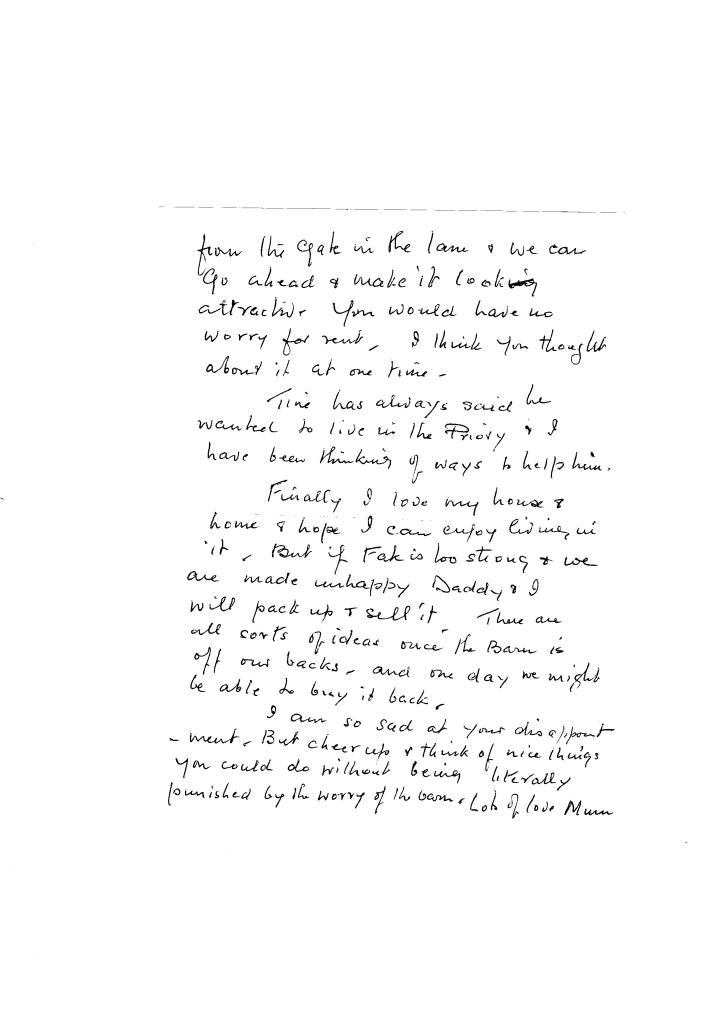 from the Gate in the lane & we can
Go ahead & make it look
attractive You would have no
worry for rent, I think you thought
about it at one time -
has always said he
wanted to live in the Priory & I
have been thinking of ways to help him.
Finally I love my house &
home & hope I can enjoy living in
it, But if is too strong & we
are made unhappy Daddy & I
will pack up & sell it There are
all sorts of ideas once the Barn is
off our backs, and one day we might
be able to buy it back.
I am so sad at your disappoint
-ment. But cheer up & think of nice things
you could do without being literally
punished by the worry of the barn. Lots of love Mum